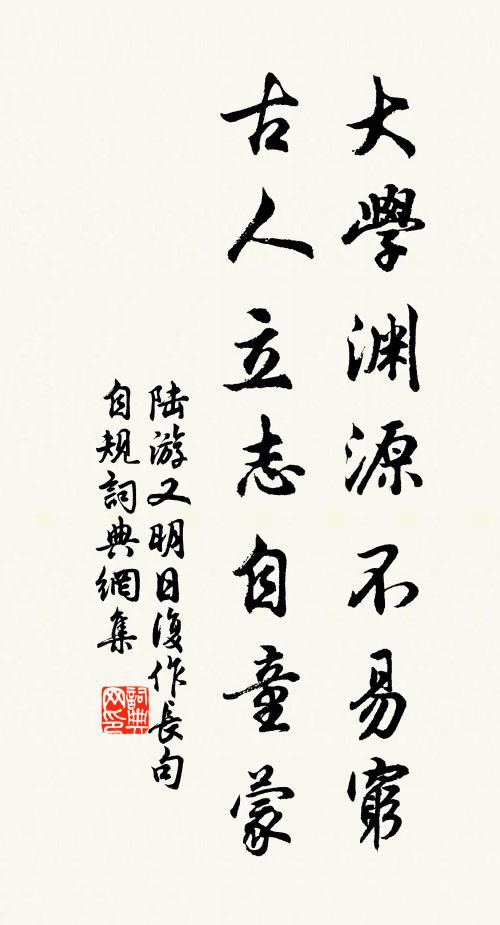 大學淵源不易窮
古人立志自童蒙
陆游又明日復作長句
自規詞典網集
詞典网印